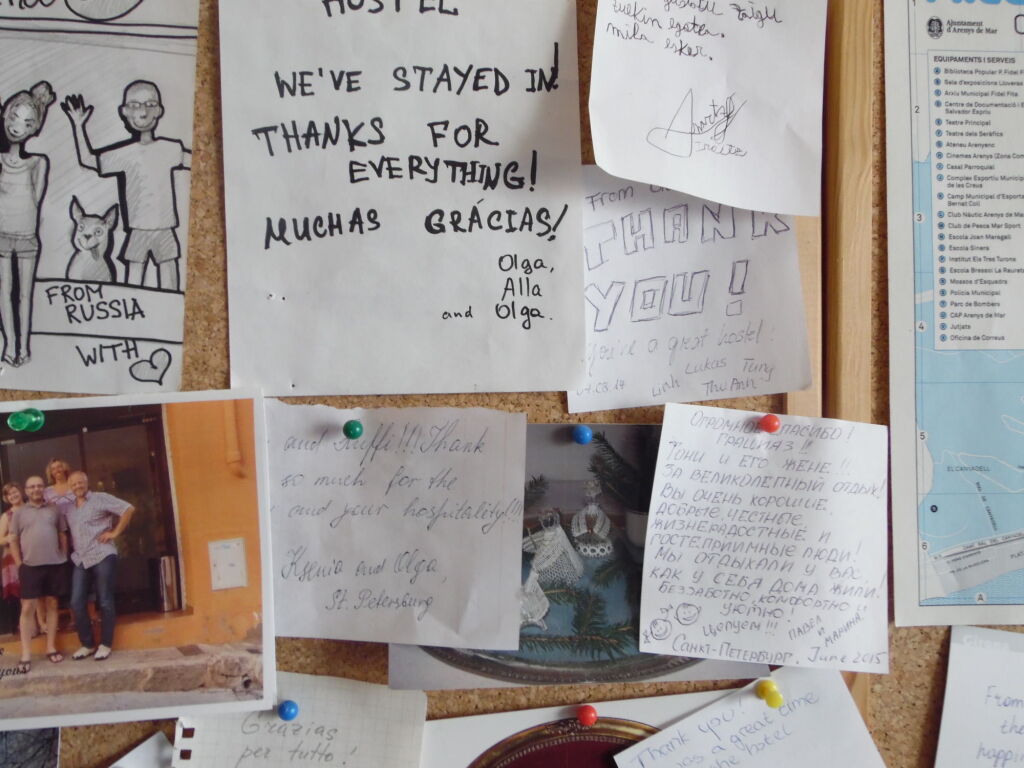 HOSTEL
WE'VE STAYED IN!
THANKS FOR
EVERYTHING!
MUCHAS GRÁCIAS!
Olga,
Alla
and Olga.
FROM
RUSSIA
WITH
zuekin egotea.
mila esker.
From
THANK
YOU!
You're a great hostel!
Linh Lukas Tung
Thu Anh
Ajuntament
d'Arenys de Mar
EQUIPAMENTS I SERVEIS
Biblioteca Popular P. Fidel
Sala d'exposicions Lloveras
Arxiu Municipal Fidel Fita
Centre de Documentació i
Salvador Espriu
Teatre Principal
Teatre dels Seràfics
Ateneu Arenyenc
Cinemes Arenys (Zona
Casal Parroquial
Complex Esportiu Municipal
de les Creus
Camp Municipal d'Esports
Bernat Coll
Club Nàutic Arenys de
Club de Pesca Mar Sport
Escola Joan Maragall
Escola Sinera
Institut Els Tres Turons
Escola Bressol La
Mossos d'Esquadra
Policia Municipal
Parc de Bombers
CAP Arenys de Mar
Jutjats
Oficina de Correus
2
3
4
5
6
A
and Kuffi!!! Thank
so much for the
and your hospitality!!!
Ksenia and Olga,
St. Petersburg
ОГРОМНОЕ СПАСИБО!
ГРАЦИАЗ!!!
ТОНИ И ЕГО ЖЕНЕ!!!
ЗА ВЕЛИКОЛЕПНЫЙ ОТДЫХ!
ВЫ ОЧЕНЬ ХОРОШИЕ,
ДОБРЫЕ, ЧЕСТНЫЕ,
ЖИЗНЕРАДОСТНЫЕ И
ГОСТЕПРИИМНЫЕ ЛЮДИ!
МЫ ОТДЫХАЛИ У ВАС,
КАК У СЕБЯ ДОМА ЖИЛИ.
БЕЗЗАБОТНО, КОМФОРТНО И
УЮТНО!
ЦЕЛУЕМ!!!
ПАВЕЛ
И
МАРИНА.
САНКТ-ПЕТЕРБУРГ. June 2015
Gràzias
per tutto!
Thank you!
as a great time
hostel
the
From
the
happi